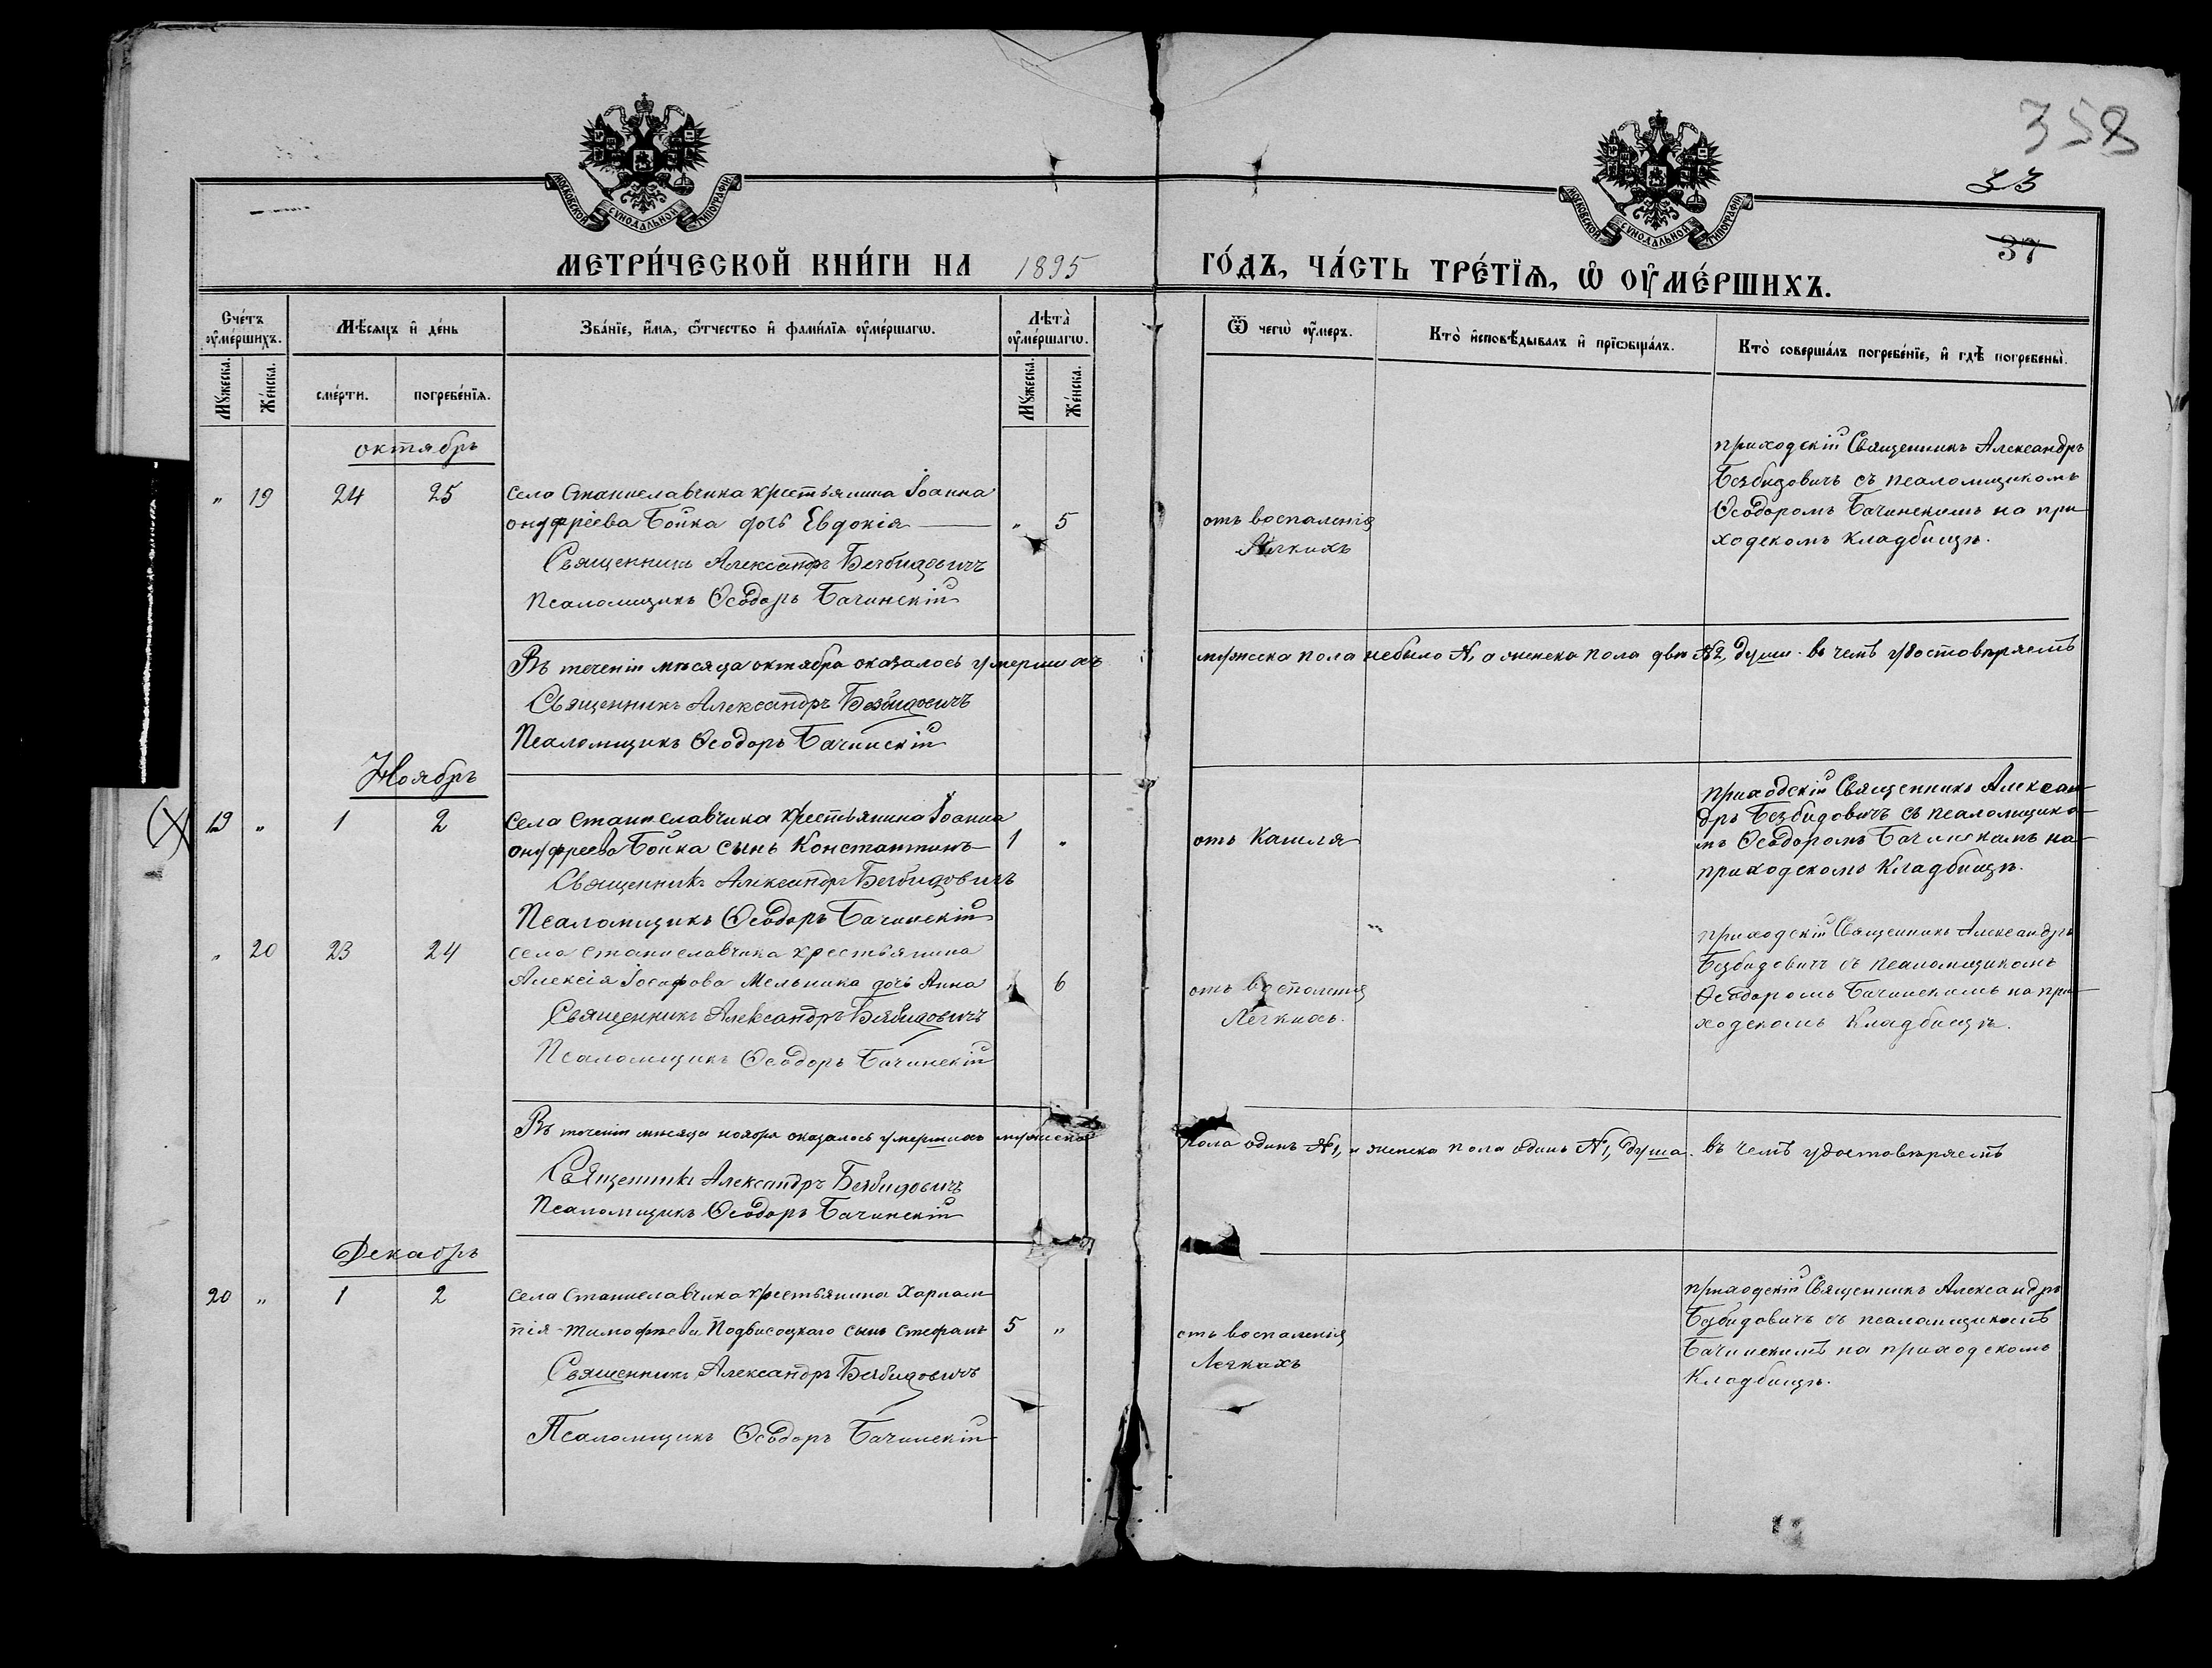 358
33
37
МОСКОВСКОЙ СѴНОДАЛЬНОЙ ТИПОГРАФІИ
МОСКОВСКОЙ СѴНОДАЛЬНОЙ ТИПОГРАФІИ
МЕТРИ́ЧЕСКОЙ КНИ́ГИ НА 1895 ГО́ДЪ, ЧА́СТЬ ТРЕ́ТІѦ, Ѽ ОУ҆МЕ́РШИХЪ.
Сче́тъ оу҆ме́ршихъ.
Мѣ́сяцъ и҆ де́нь
Зва́нїе, и҆́мѧ, ѻ҆́тчество и҆ фами́лїѧ оу҆ме́ршагѡ.
Лѣта̀ оу҆ме́ршагѡ.
Ѿ чегѡ̀ оу҆́меръ.
Кто̀ и҆сповѣ́дывалъ и҆ прїѡбща́лъ.
Кто̀ соверша́лъ погребе́нїе, и҆ гдѣ̀ погребены̀.
Мꙋ́жеска.
Же́нска.
сме́рти.
погребе́нїѧ.
Мꙋ́жеска.
Же́нска.
октябрь
" 19 24 25 село Станиславчика крестьянина Іоанна
онуфріева Бойка дочь Евдокія — " 5
Священникъ Александръ Безбидовичъ
Псаломщикъ Ѳеодоръ Бачинскій
отъ воспаленія
Легкихъ
приходскій Священникъ Александръ
Безбидовичъ съ псаломщикомъ
Ѳеодоромъ Бачинскимъ на при
ходскомъ Кладбищѣ.
Въ теченіи мѣсяца октября оказалось умершихъ мужеска пола небыло №, а женска пола двѣ №2, души. въ чемъ удостовѣряетъ
Священникъ Александръ Безбидовичъ
Псаломщикъ Ѳеодоръ Бачинскій
Ноябрь
19 " 1 2 села Станиславчика крестьянина Іоанна
онуфреева Бойка сынъ Константинъ 1 "
Священникъ Александръ Безбидовичъ
Псаломщикъ Ѳеодоръ Бачинскій
отъ Кашля
приходскій Священникъ Алексан
дръ Безбидовичъ съ псаломщико
мъ Ѳеодоромъ Бачинскимъ на
приходскомъ Кладбищѣ.
" 20 23 24 села Станиславчика крестьянина
Алексія Іосифова Мельника дочь Анна " 6
Священникъ Александръ Безбидовичъ
Псаломщикъ Ѳеодоръ Бачинскій
отъ воспаленія
Легкихъ.
приходскій Священникъ Александръ
Безбидовичъ съ псаломщикомъ
Ѳеодоромъ Бачинскимъ на при
ходскомъ Кладбищѣ.
Въ теченіи мѣсяца ноября оказалось умершихъ мужеска пола одинъ №1, и женска пола одинъ №1, душа. въ чемъ удостовѣряетъ
Священникъ Александръ Безбидовичъ
Псаломщикъ Ѳеодоръ Бачинскій
Декабрь
20 " 1 2 села Станиславчика крестьянина Харлам
пія Тимофѣева Подвисоцкаго сынъ Стефанъ 5 "
Священникъ Александръ Безбидовичъ
Псаломщикъ Ѳеодоръ Бачинскій
отъ воспаленія
Легкихъ
приходскій Священникъ Александръ
Безбидовичъ съ псаломщикомъ
Бачинскимъ на приходскомъ
Кладбищѣ.